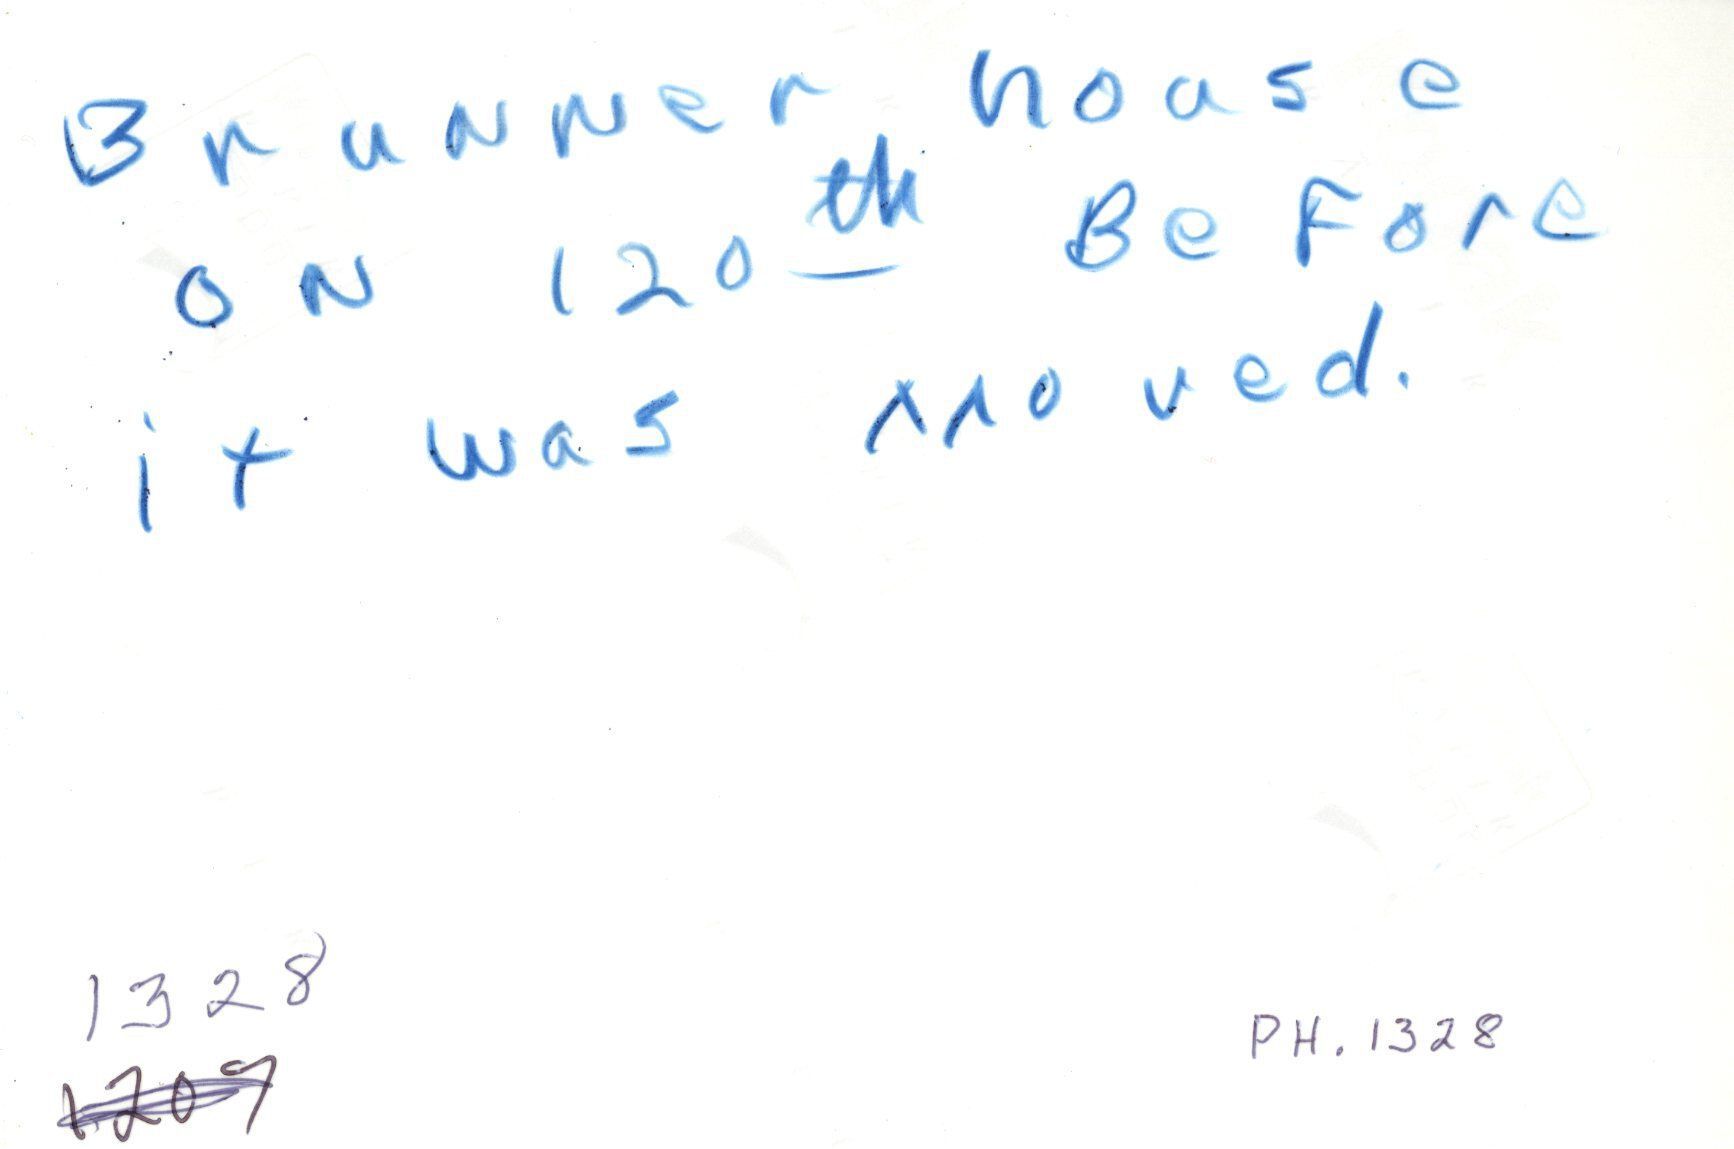 Brunner house
on 120th Before
it was moved.
1328
1209
PH. 1328